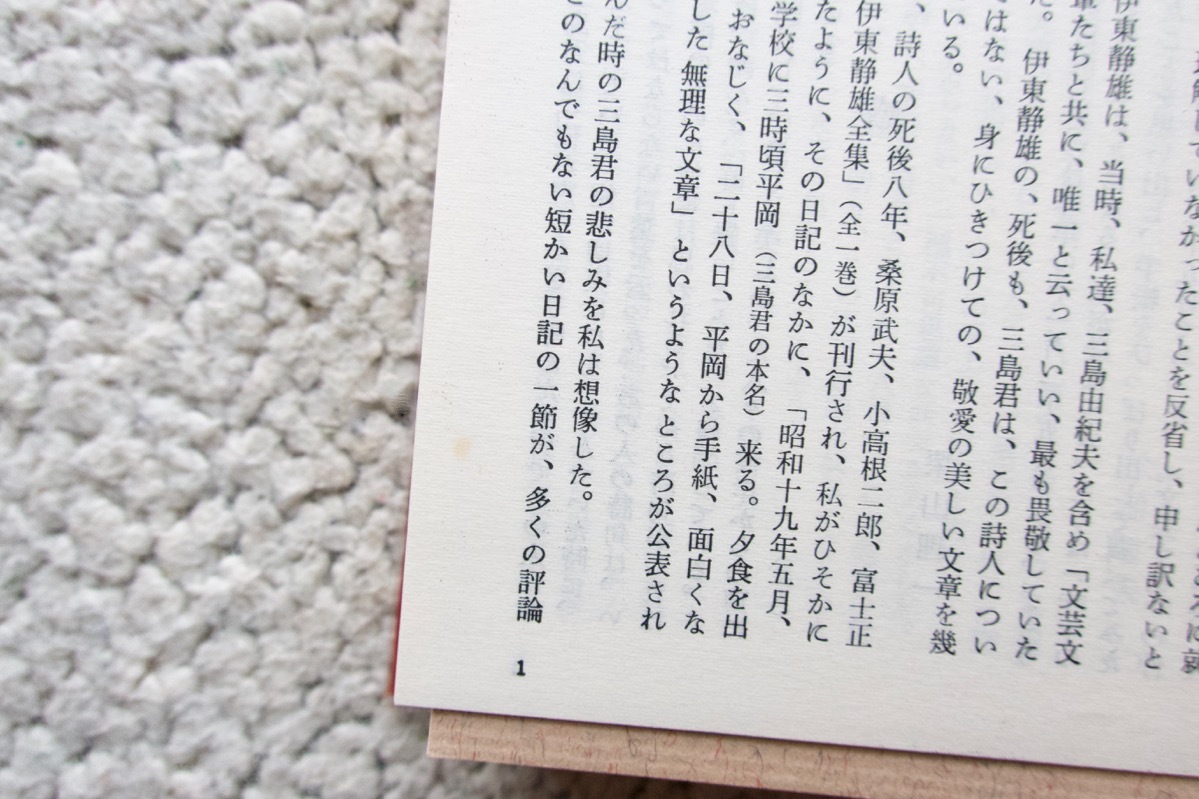 ていなかったことを反省し、申し訳ないと
伊東静雄は、当時、私達、三島由紀夫を含め「文芸文
輩たちと共に、唯一と云っていい、最も畏敬していた
た。伊東静雄の、死後も、三島君は、この詩人につい
ではない、身にひきつけての、敬愛の美しい文章を幾
いる。
、詩人の死後八年、桑原武夫、小高根二郎、富士正
伊東静雄全集」（全一巻）が刊行され、私がひそかに
たように、その日記のなかに、「昭和十九年五月、
学校に三時頃平岡（三島君の本名）来る。夕食を出
おなじく、「二十八日、平岡から手紙、面白くな
した無理な文章」というようなところが公表され
んだ時の三島君の悲しみを私は想像した。
このなんでもない短かい日記の一節が、多くの評論
1